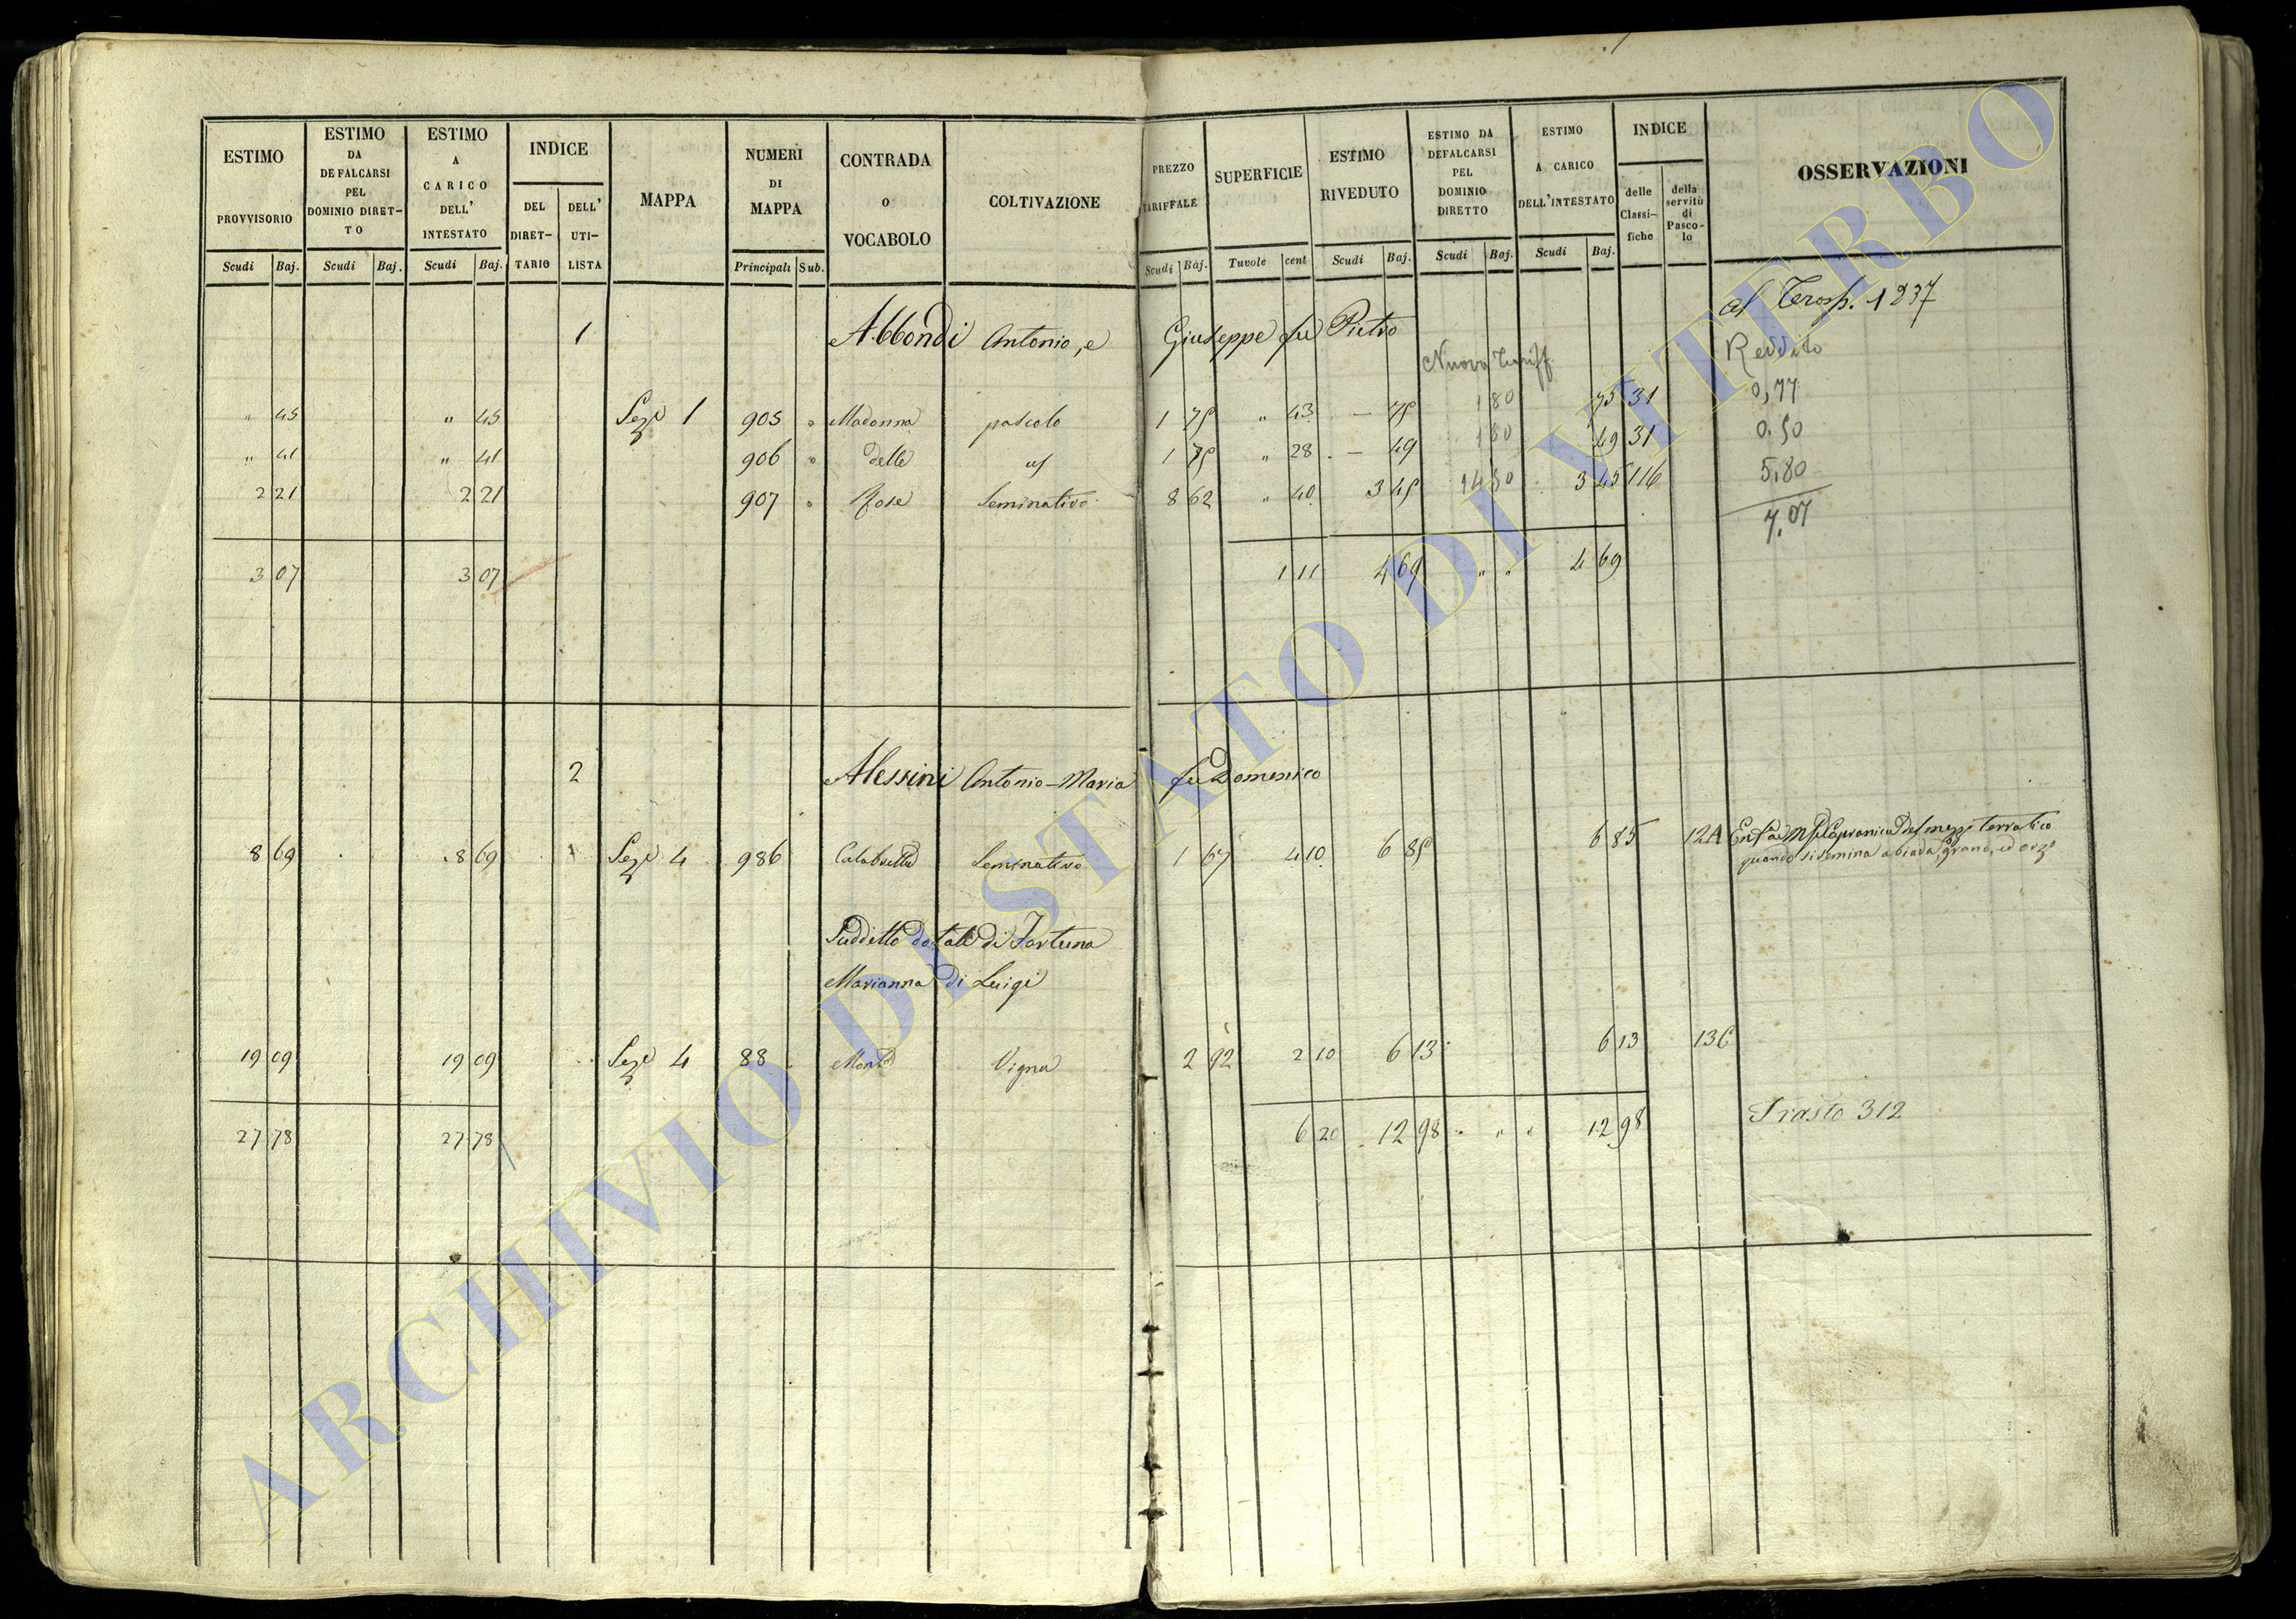 ESTIMO PROVVISORIO Scudi Baj.
ESTIMO DA DEFALCARSI PEL DOMINIO DIRET- TO Scudi Baj.
ESTIMO A CARICO DELL' INTESTATO Scudi Baj.
INDICE DEL DIRET- TARIO DELL' UTI- LISTA
MAPPA
NUMERI DI MAPPA Principali Sub.
CONTRADA O VOCABOLO
COLTIVAZIONE
PREZZO TARIFFALE Scudi Baj.
SUPERFICIE Tavole cent
ESTIMO RIVEDUTO Scudi Baj.
ESTIMO DA DEFALCARSI PEL DOMINIO DIRETTO Scudi Baj.
ESTIMO A CARICO DELL'INTESTATO Scudi Baj.
INDICE delle Classi- fiche della servitù di Pasco- lo
OSSERVAZIONI
al Trasp. 1237
1 Abbondi Antonio, e Giuseppe fu Pietro
Nuova Tariff. Reddito
" 45 " 45 Sezе 1 905 " Madonna pascolo 1 75 " 43 — 75 1 80 75 31 0,77
" 41 " 41 906 " delle 1 75 " 28 — 49 1 80 49 31 0.50
2 21 2 21 907 " Rose Seminativo 8 62 " 40 3 45 14 50 3 45 116 5,80
3 07 3 07 1 11 4 69 " " 4 69 7.07
2 Alessini Antonio-Maria fu Domenico
8 69 8 69 Sezе 4 986 Calabrella Seminativo 1 67 4 10 6 85 6 85 124
quando si semina a biada, grano, ed orzo
Suddetto dotale di Fortuna
Marianna di Luigi
19 09 19 09 Sezе 4 88 Monte Vigna 2 92 2 10 6 13 6 13 136
27 78 27 78 6 20 12 98 " " " 12 98 312
ARCHIVIO DI STATO DI VITERBO